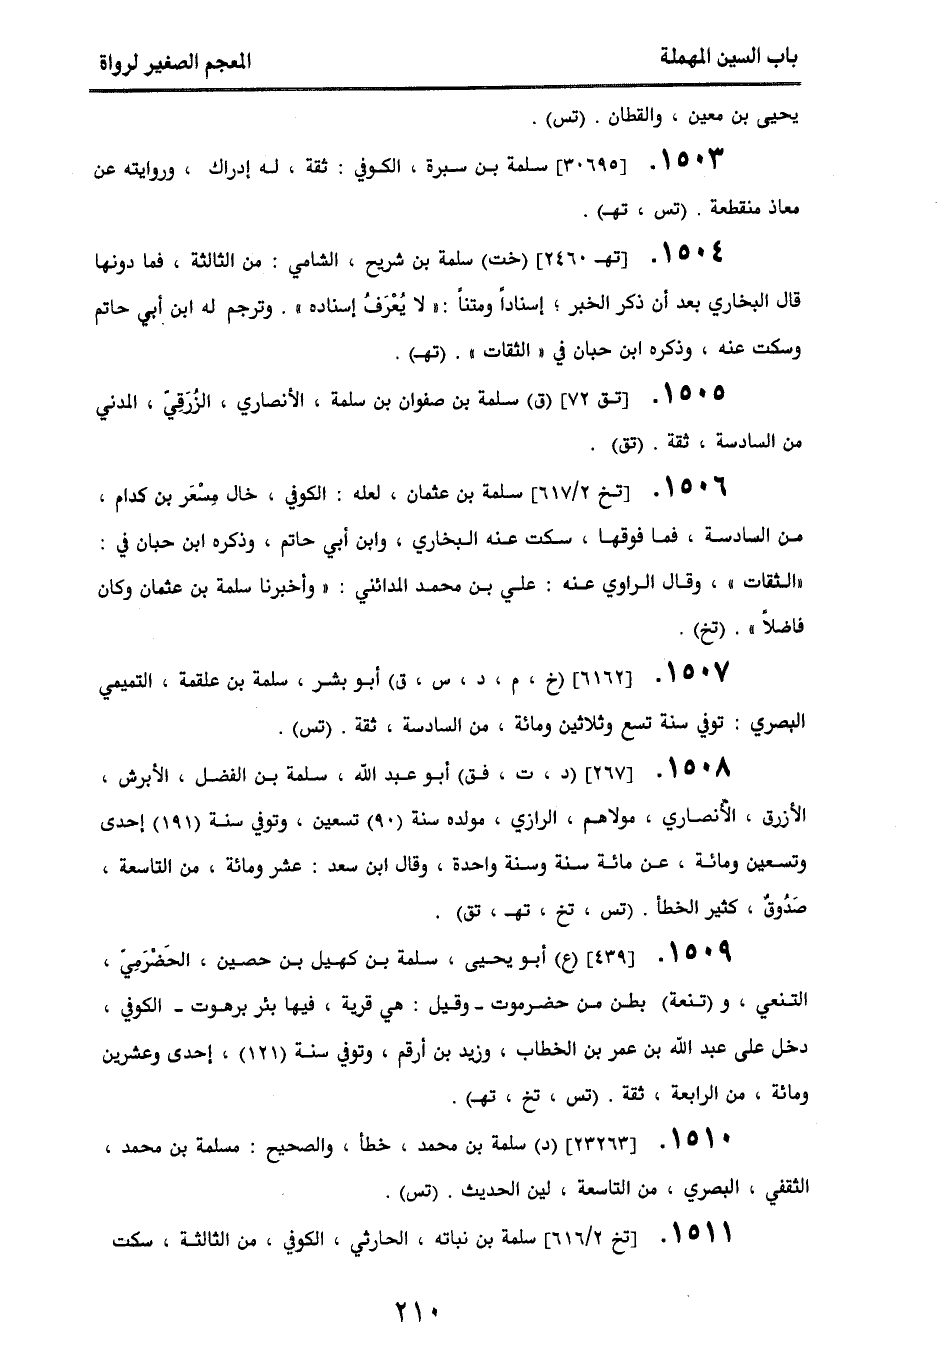 باب السين المهملة
المعجم الصغير لرواة
يحيى بن معين ، والقطان . (تس) .
١٥٠٣. [٣٠٦٩٥] سلمة بن سبرة ، الكوفي : ثقة ، له إدراك ، وروايته عن
معاذ منقطعة . (تس ، تهـ) .
١٥٠٤. [تهـ ٢٤٦٠] (خت) سلمة بن شريح ، الشامي : من الثالثة ، فما دونها
قال البخاري بعد أن ذكر الخبر ؛ إسناداً ومتناً :« لا يُعْرَفُ إسناده » . وترجم له ابن أبي حاتم
وسكت عنه ، وذكره ابن حبان في « الثقات » . (تهـ) .
١٥٠٥. [تق ٧٢] (ق) سلمة بن صفوان بن سلمة ، الأنصاري ، الزُرَقِيّ ، المدني
من السادسة ، ثقة . (تق) .
١٥٠٦. [تخ ٦١٧/٢] سلمة بن عثمان ، لعله : الكوفي ، خال مِسْعَر بن كدام ،
من السادسة ، فما فوقها ، سكت عنه البخاري ، وابن أبي حاتم ، وذكره ابن حبان في :
«الثقات » ، وقال الراوي عنه : علي بن محمد المدائني : « وأخبرنا سلمة بن عثمان وكان
فاضلاً » . (تخ) .
١٥٠٧. [٦١٦٢] (خ ، م ، د ، س ، ق) أبو بشر ، سلمة بن علقمة ، التميمي
البصري : توفي سنة تسع وثلاثين ومائة ، من السادسة ، ثقة . (تس) .
١٥٠٨. [٢٦٧] (د ، ت ، فق) أبو عبد الله ، سلمة بن الفضل ، الأبرش ،
الأزرق ، الأنصاري ، مولاهم ، الرازي ، مولده سنة (٩٠) تسعين ، وتوفي سنة (١٩١) إحدى
وتسعين ومائة ، عن مائة سنة وسنة واحدة ، وقال ابن سعد : عشر ومائة ، من التاسعة ،
صَدُوقٌ ، كثير الخطأ . (تس ، تخ ، تهـ ، تق) .
١٥٠٩. [٤٣٩] (ع) أبو يحيى ، سلمة بن كهيل بن حصين ، الحَضْرَمِيّ ،
التنعي ، و (تنعة) بطن من حضرموت ـ وقيل : هي قرية ، فيها بئر برهوت ـ الكوفي ،
دخل على عبد الله بن عمر بن الخطاب ، وزيد بن أرقم ، وتوفي سنة (١٢١) ، إحدى وعشرين
ومائة ، من الرابعة ، ثقة . (تس ، تخ ، تهـ) .
١٥١٠. [٢٣٢٦٣] (د) سلمة بن محمد ، خطأ ، والصحيح : مسلمة بن محمد ،
الثقفي ، البصري ، من التاسعة ، لين الحديث . (تس) .
١٥١١. [تخ ٦١٦/٢] سلمة بن نباته ، الحارثي ، الكوفي ، من الثالثة ، سكت
٢١٠